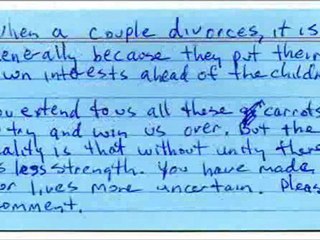 when a couple divorces, it is
generally because they put their
own interests ahead of the childr
you extend to us all these carrots
to try and win us over. But the
reality is that without unity there
is less strength. You have made
our lives more uncertain. Pleas
comment.